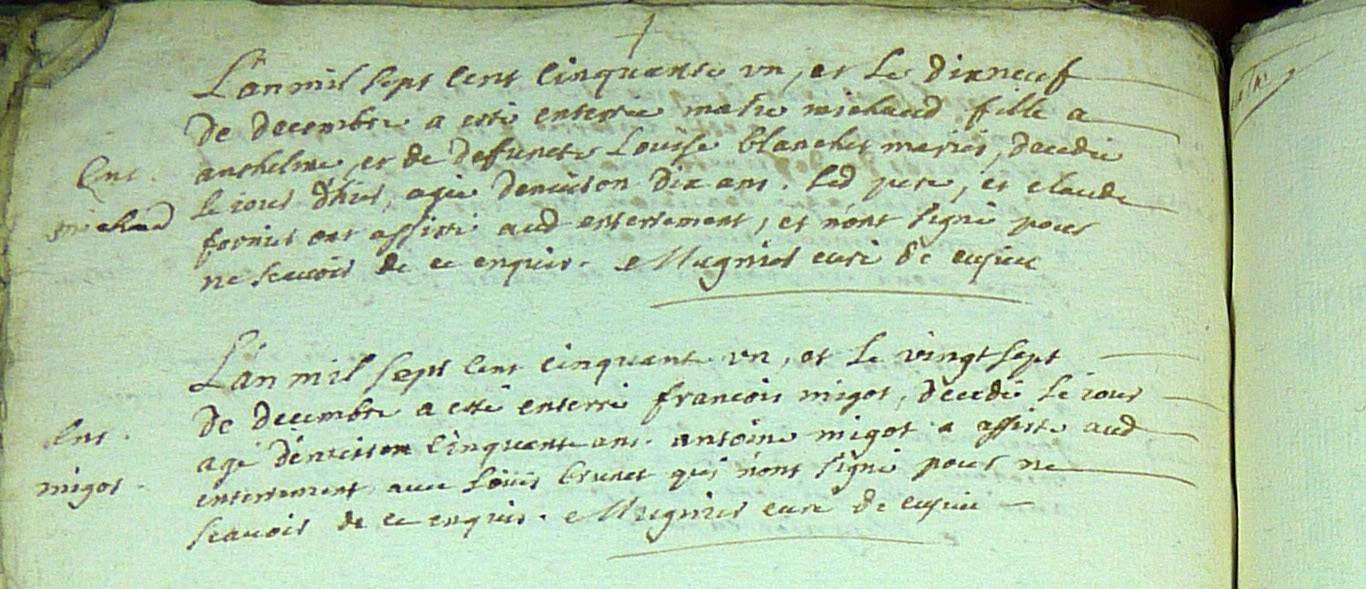 L'an mil sept cent cinquante un, et le dixneuf
de decembre a esté enterrée michaud fille a
Ent. anthelme, et de defuncte Louise blanchet mariés, decedée
michaud le jour d'hier, agée denviron dix ans. led pere, et claude
fornier ont assisté aud enterrement, et n'ont signé pour
ne scavoir de ce enquis. Mugnier curé de cuzieu
L'an mil sept cent cinquante un, et le vingt sept
de decembre a esté enterré francois migot, decedé le jour
Ent. agé denviron cinquante ans. antoine migot a assisté aud
migot. enterrement avec Loüis brunet qui n'ont signé pour ne
scavoir de ce enquis. Mugnier curé de cuzieu